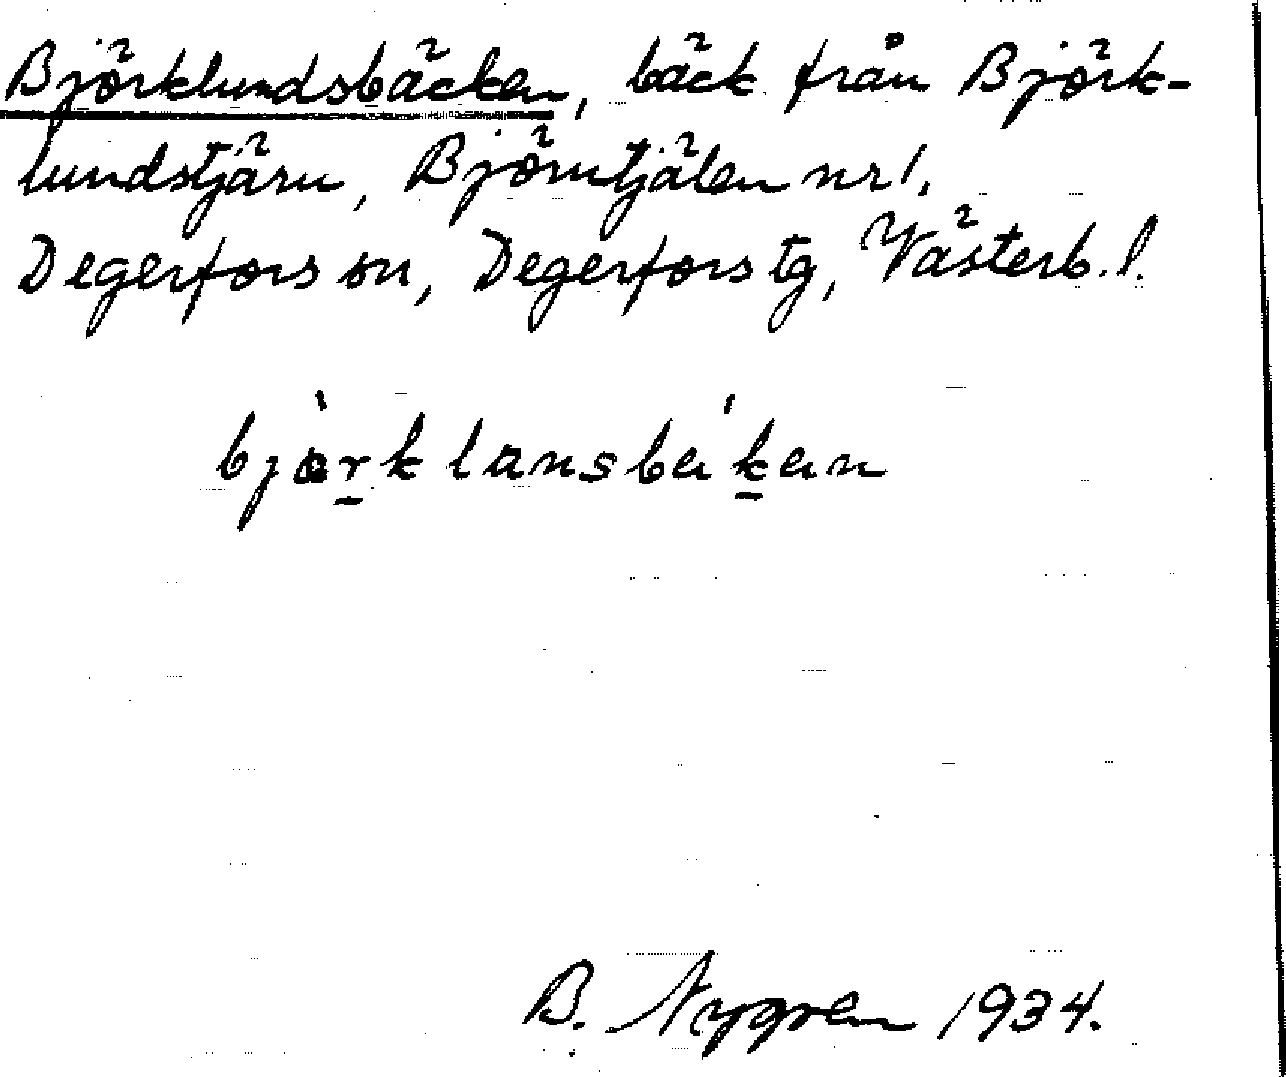 Björklundsbäcken, bäck från Björk-
lundstjärn, Björntjälen nr 1,
Degerfors sn, Degerfors tg, Västerb. l.
B. Nygren 1934.